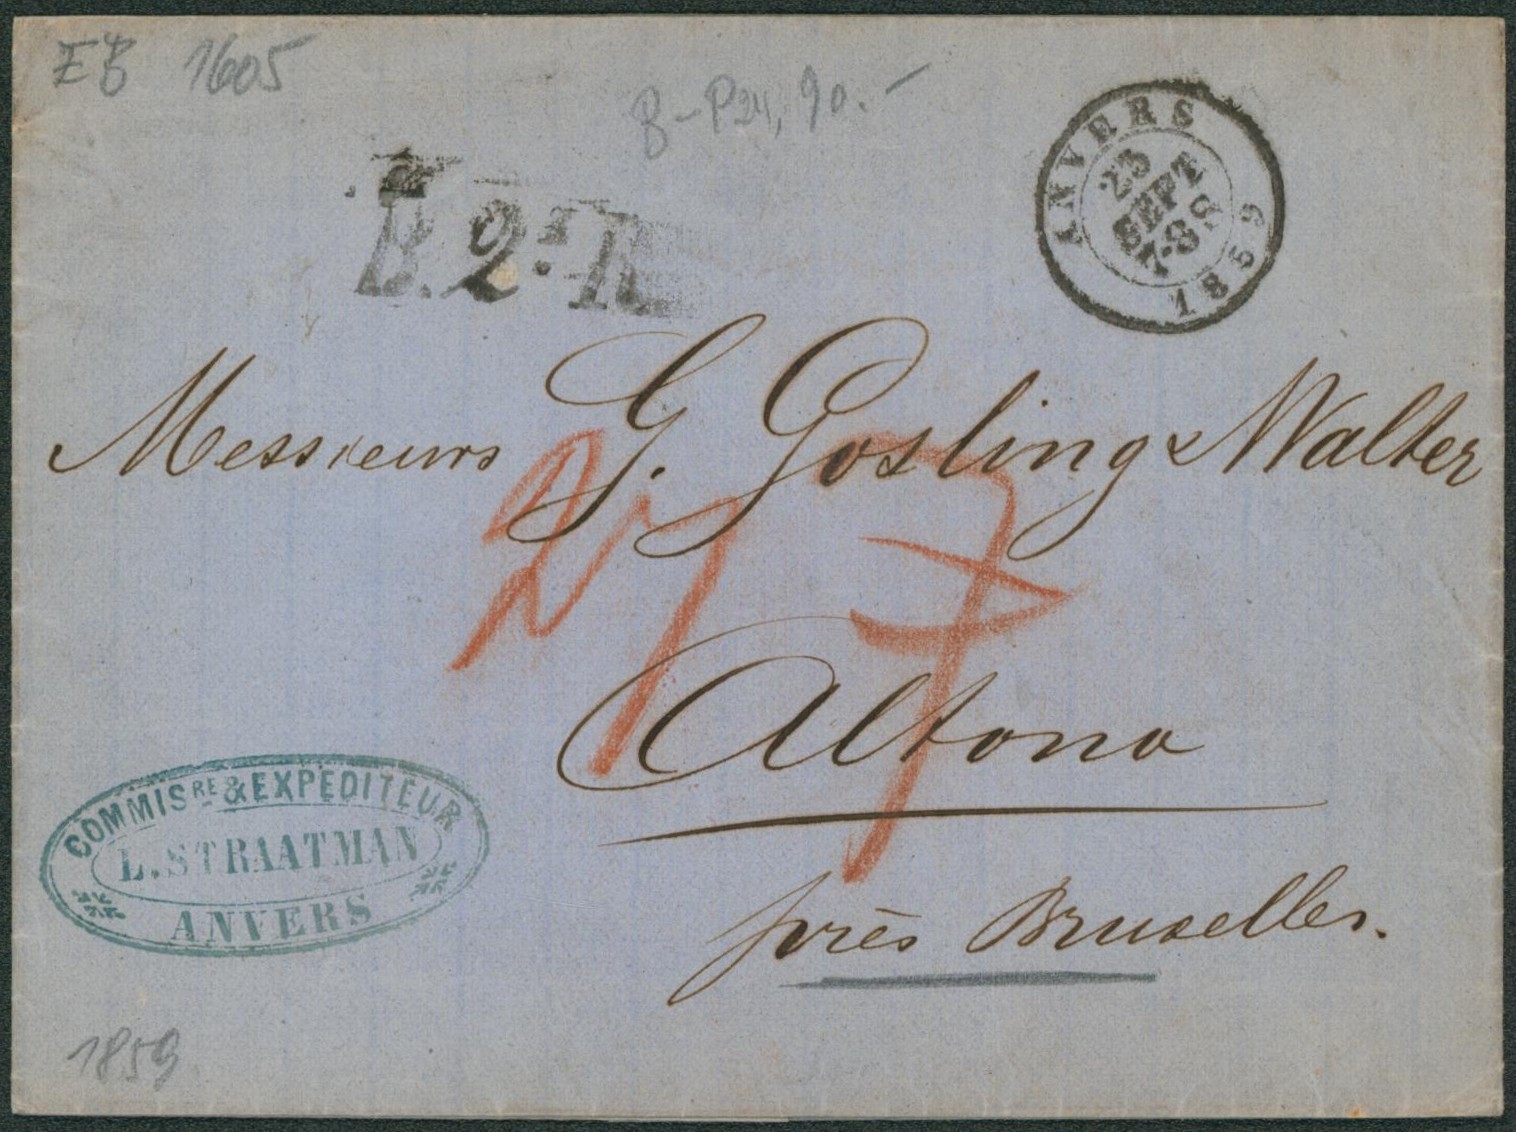 EB 1605
B-P24, 90.-
B. 2e. R
ANVERS
23
SEPT
7-8 S
1859
Messieurs G. Gosling & Walter
7
Altona
près Bruxelles.
COMMISRE & EXPÉDITEUR
L. STRAATMAN
ANVERS
1859